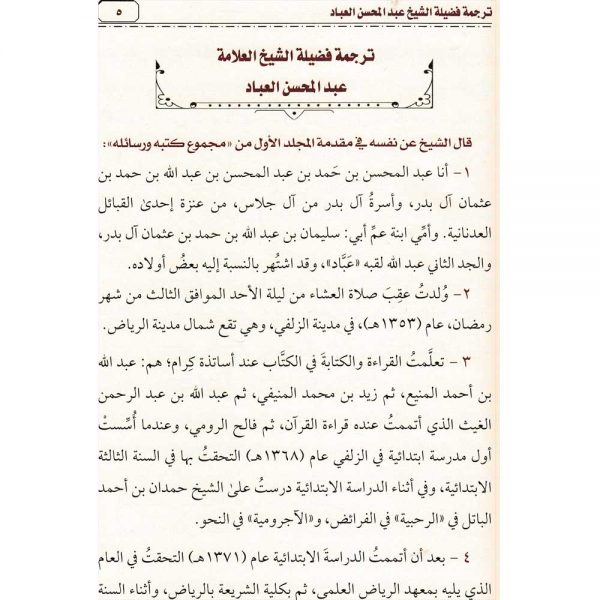 ترجمة فضيلة الشيخ عبد المحسن العباد
٥
ترجمة فضيلة الشيخ العلامة
عبد المحسن العباد
قال الشيخ عن نفسه في مقدمة المجلد الأول من «مجموع كتبه ورسائله»:
١- أنا عبد المحسن بن حَمد بن عبد المحسن بن عبد الله بن حمد بن
عثمان آل بدر، وأسرةُ آل بدر من آل جلاس، من عنزة إحدى القبائل
العدنانية. وأمِّي ابنة عمِّ أبي: سليمان بن عبد الله بن حمد بن عثمان آل بدر،
والجد الثاني عبد الله لقبه «عَبَّاد»، وقد اشتُهر بالنسبة إليه بعضُ أولاده.
٢- وُلدتُ عقِبَ صلاة العشاء من ليلة الأحد الموافق الثالث من شهر
رمضان، عام (١٣٥٣هـ)، في مدينة الزلفي، وهي تقع شمال مدينة الرياض.
٣ - تعلَّمتُ القراءة والكتابة في الكتَّاب عند أساتذة كِرام؛ هم: عبد الله
بن أحمد المنيع، ثم زيد بن محمد المنيفي، ثم عبد الله بن عبد الرحمن
الغيث الذي أتممتُ عنده قراءة القرآن، ثم فالح الرومي، وعندما أُسِّستْ
أول مدرسة ابتدائية في الزلفي عام (١٣٦٨هـ) التحقتُ بها في السنة الثالثة
الابتدائية، وفي أثناء الدراسة الابتدائية درستُ علىٰ الشيخ حمدان بن أحمد
الباتل في «الرحبية» في الفرائض، و«الآجرومية» في النحو.
٤ - بعد أن أتممتُ الدراسةَ الابتدائية عام (١٣٧١هـ) التحقتُ في العام
الذي يليه بمعهد الرياض العلمي، ثم بكلية الشريعة بالرياض، وأثناء السنة